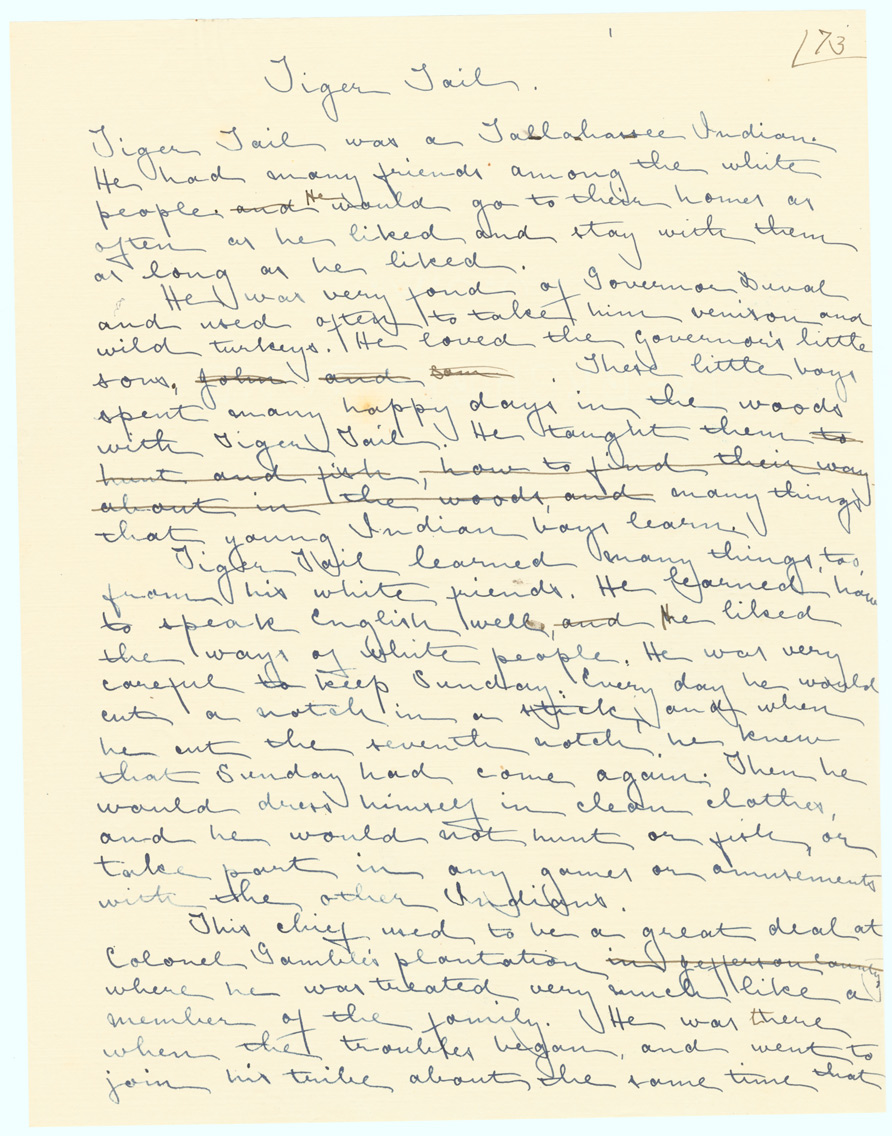 173
Tiger Tail.
Tiger Tail was a Tallahassee Indian.
He had many friends among the white
people. and He would go to their homes as
often as he liked and stay with them
as long as he liked.
He was very fond of Governor Duval
and used often to take him venison and
wild turkeys. He loved the governor's little
sons, John and Sam. These little boys
spent many happy days in the woods
with Tiger Tail. He taught them to
hunt and fish, how to find their way
about in the woods, and many things
that young Indian boys learn.
Tiger Tail learned many things, too,
from his white friends. He learned how
to speak English well, and He liked
the ways of white people. He was very
careful to keep Sunday. Every day he would
cut a notch in a stick, and when
he cut the seventh notch he knew
that Sunday had come again. Then he
would dress himself in clean clothes,
and he would not hunt or fish, or
take part in any games or amusements
with the other Indians.
This chief used to be a great deal at
Colonel Gamble's plantation in Jefferson County
where he was treated very much like a
member of the family. He was there
when the troubles began, and went to
join his tribe about the same time that